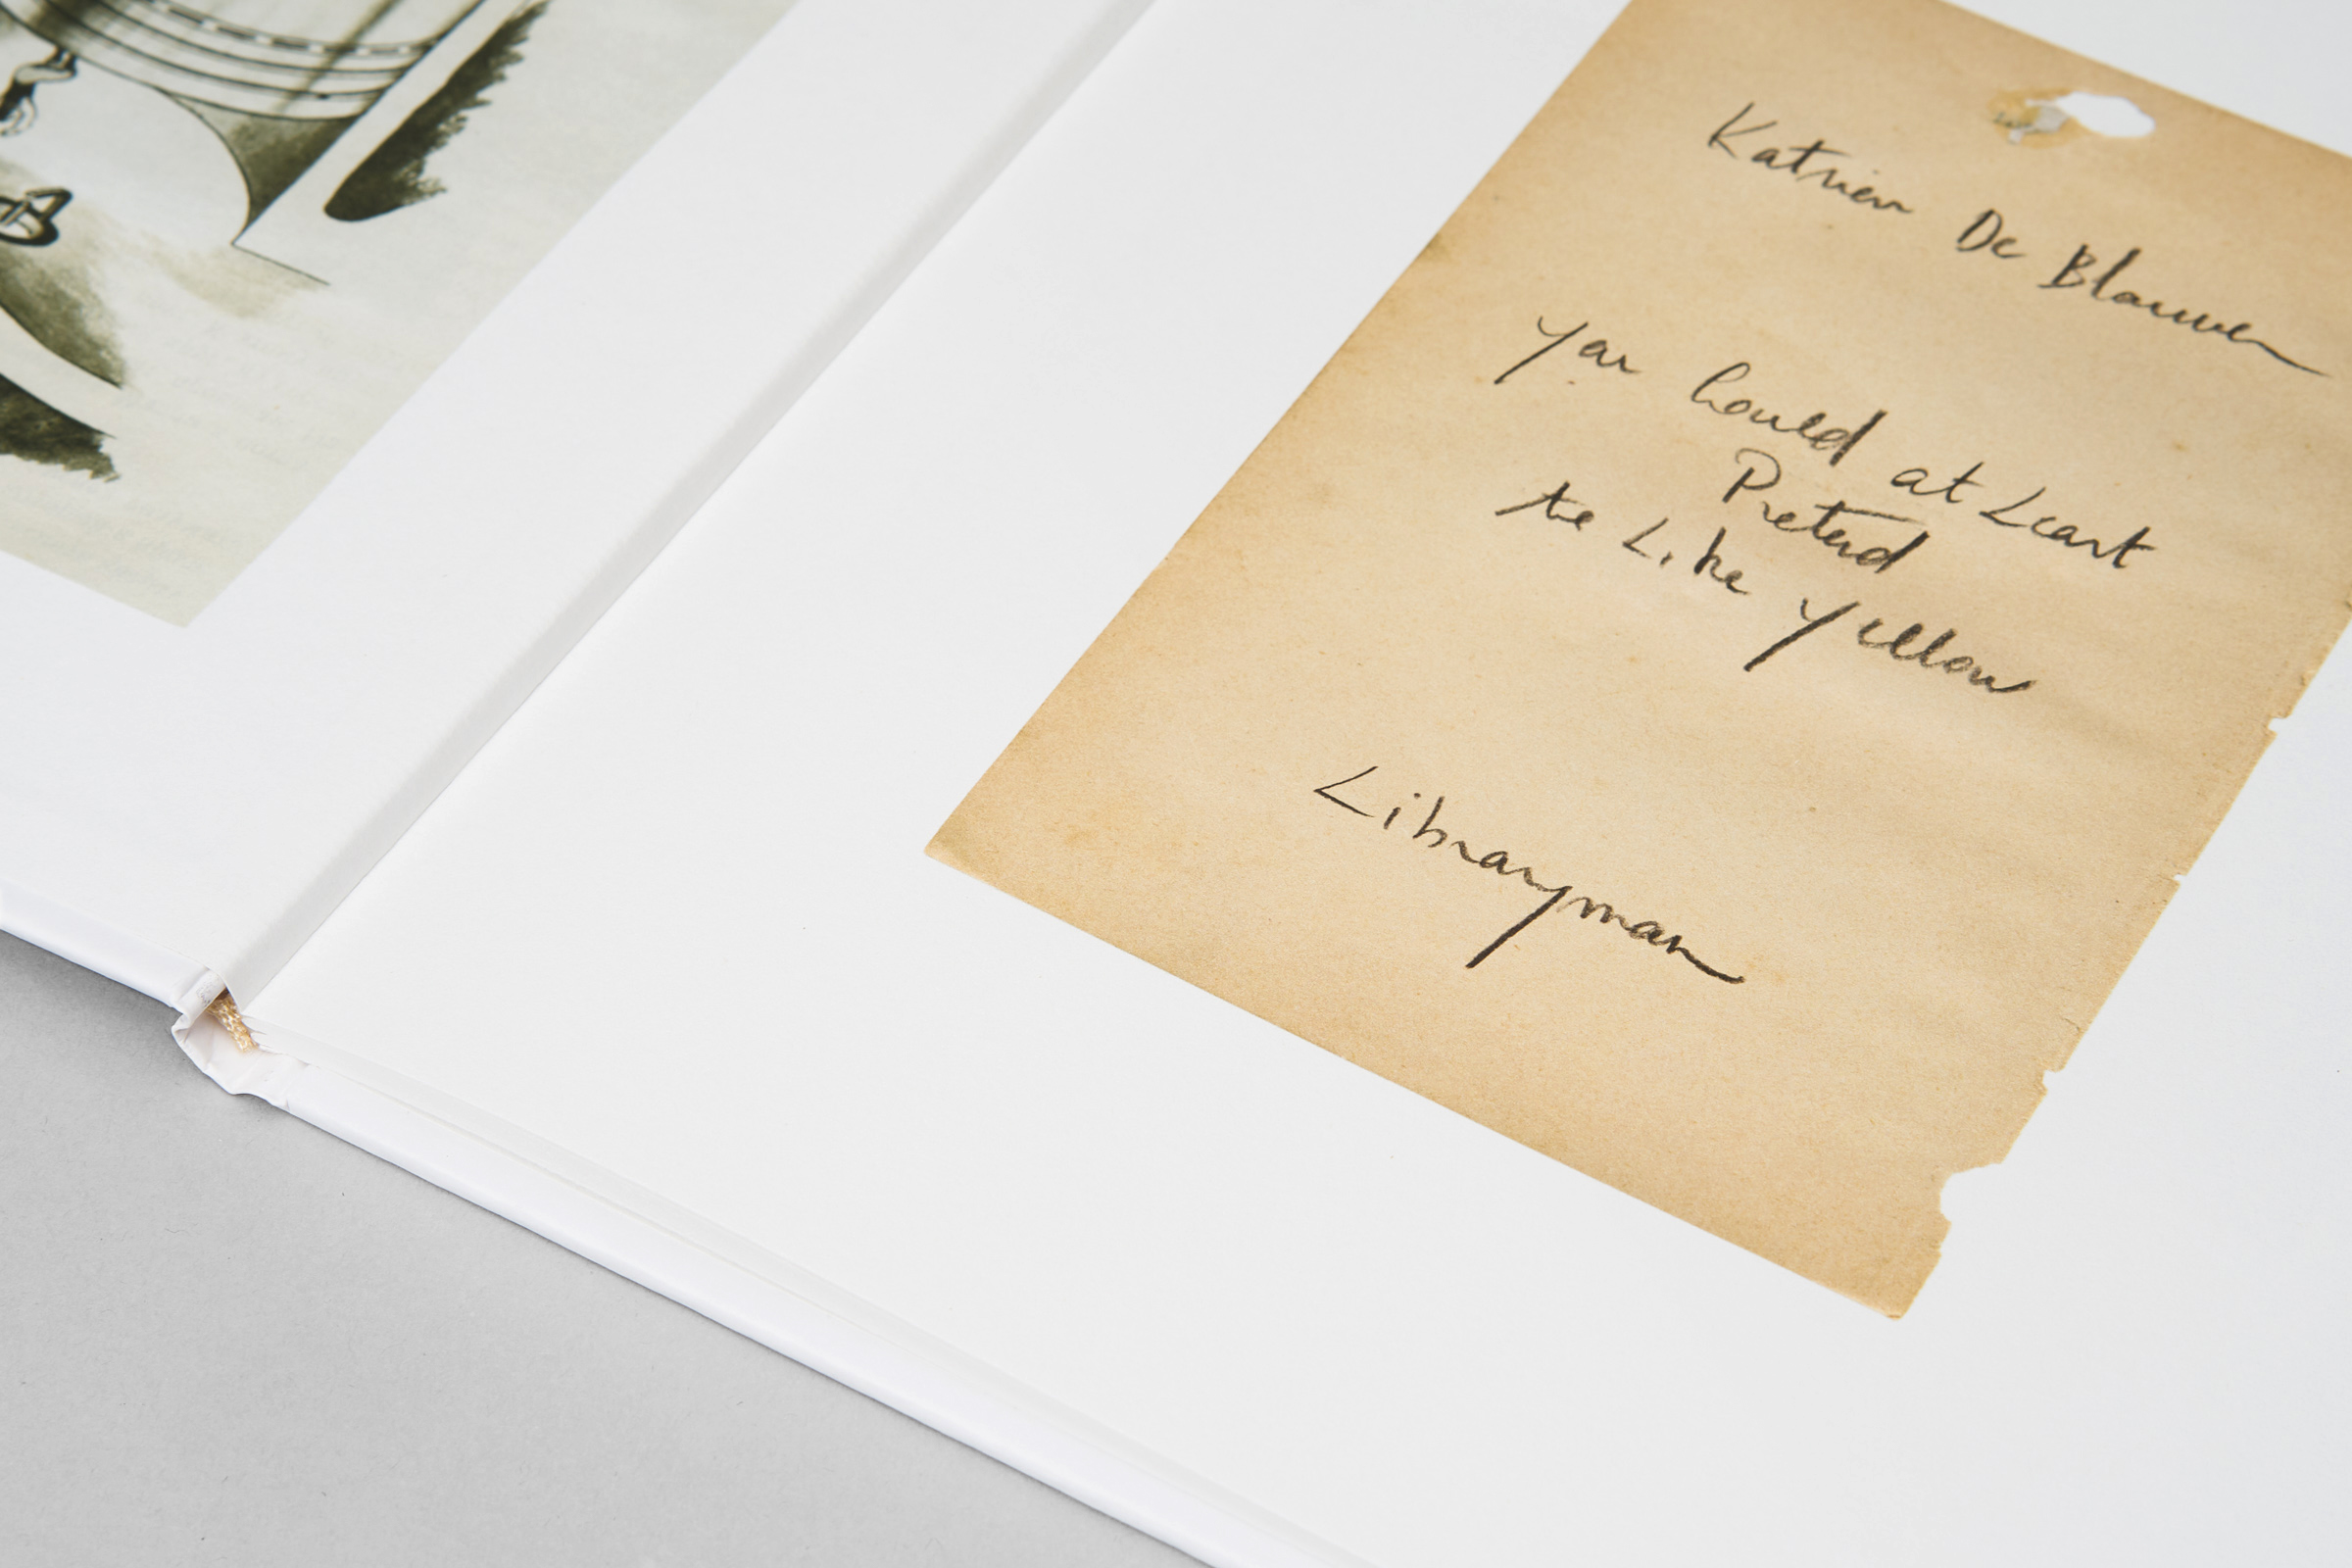 Katrien De Blauwer
You Could at Least
Pretend
to Like Yellow
Libraryman